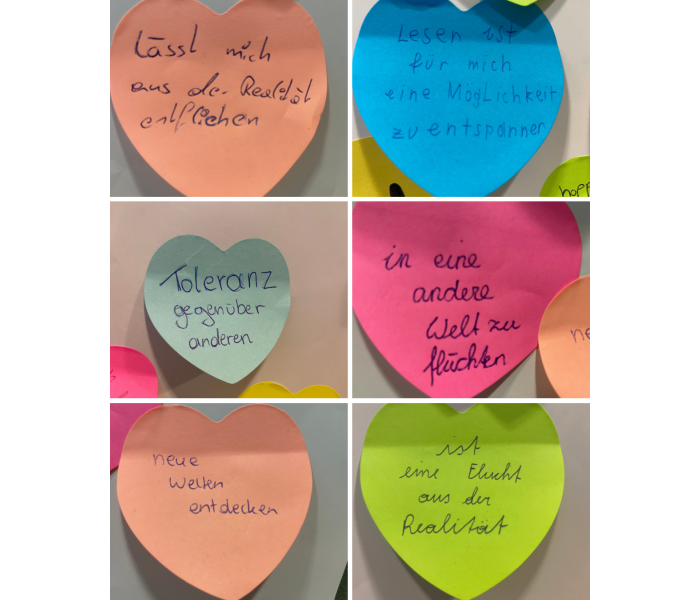 Lässt mich
aus der Realität
entfliehen
Lesen ist
für mich
eine Möglichkeit
zu entspannen
hopp
Toleranz
gegenüber
anderen
in eine
andere
Welt zu
flüchten
ne
neue
Welten
entdecken
ist
eine Flucht
aus der
Realität